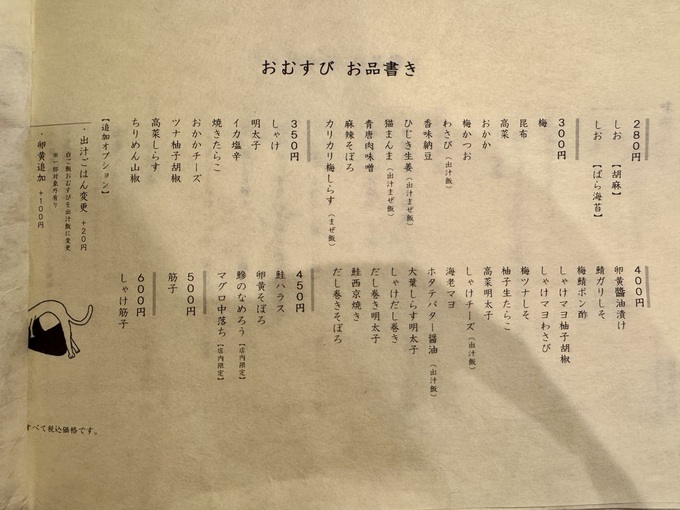 おむすび お品書き
280円
しお 【胡麻】
しお 【ばら海苔】
300円
梅
昆布
高菜
おかか
梅かつお
わさび(出汁飯)
香味納豆
ひじき生姜(出汁まぜ飯)
猫まんま(出汁まぜ飯)
青唐肉味噌
麻辣そぼろ
カリカリ梅しらす(まぜ飯)
350円
しゃけ
明太子
イカ塩辛
焼きたらこ
おかかチーズ
ツナ柚子胡椒
高菜しらす
ちりめん山椒
【追加オプション】
・出汁ごはん変更 +20円
白ご飯おむすびを出汁飯に変更
※一部対象外有り
・卵黄追加 +100円
400円
卵黄醬油漬け
鯖ガリしそ
梅鯖ポン酢
しゃけマヨ柚子胡椒
しゃけマヨわさび
梅ツナしそ
柚子生たらこ
高菜明太子
しゃけチーズ(出汁飯)
海老マヨ
ホタテバター醤油(出汁飯)
大葉しらす明太子
しゃけだし巻き
だし巻き明太子
鮭西京焼き
だし巻きそぼろ
450円
鮭ハラス
卵黄そぼろ
鯵のなめろう【店内限定】
マグロ中落ち【店内限定】
500円
筋子
600円
しゃけ筋子
すべて税込価格です。